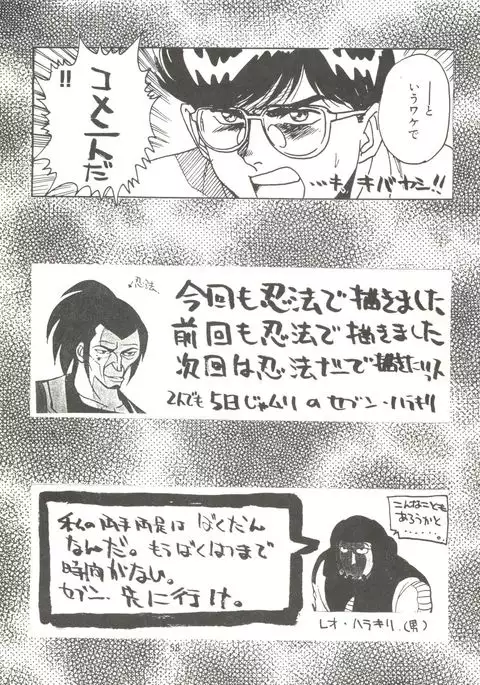 ―と
いうワケで
コメントだ
!!
…キ、キバヤシ!!
忍法
今回も忍法で描きました
前回も忍法で描きました
次回は忍法ナーで描きたいっス
2人でも5日じゃムリのセブン・ハラキリ
こんなことも
あろうかと
……。
私の両手両足はばくだん
なんだ。もうばくはつまで
時間がない。
セブン、先に行け。
レオ・ハラキリ(男)
58